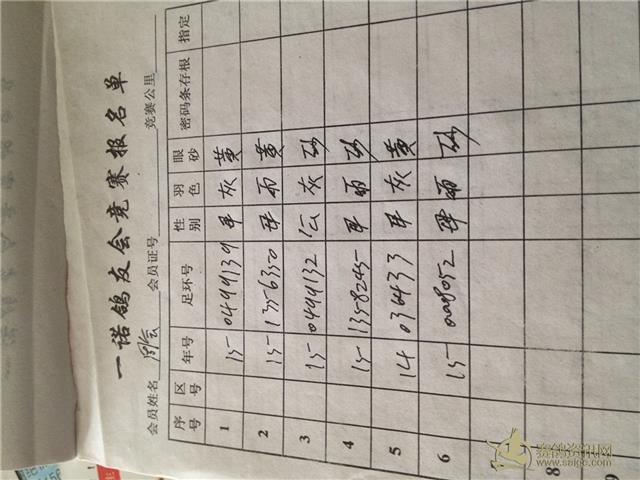 一诺鸽友会竞赛报名单
会员姓名 会员证号 竞赛公里
序号 区号 年号 足环号 性别 羽色 眼砂 密码条存根 指定
1 15 0499139 灰 黄
2 15 1356350 雨 黄
3 15 0499132 公 灰 砂
4 15 1358245 雨 砂
5 14 036433 灰 黄
6 15 雨 砂
7
8
9
赛鸽资讯网
www.saige.com